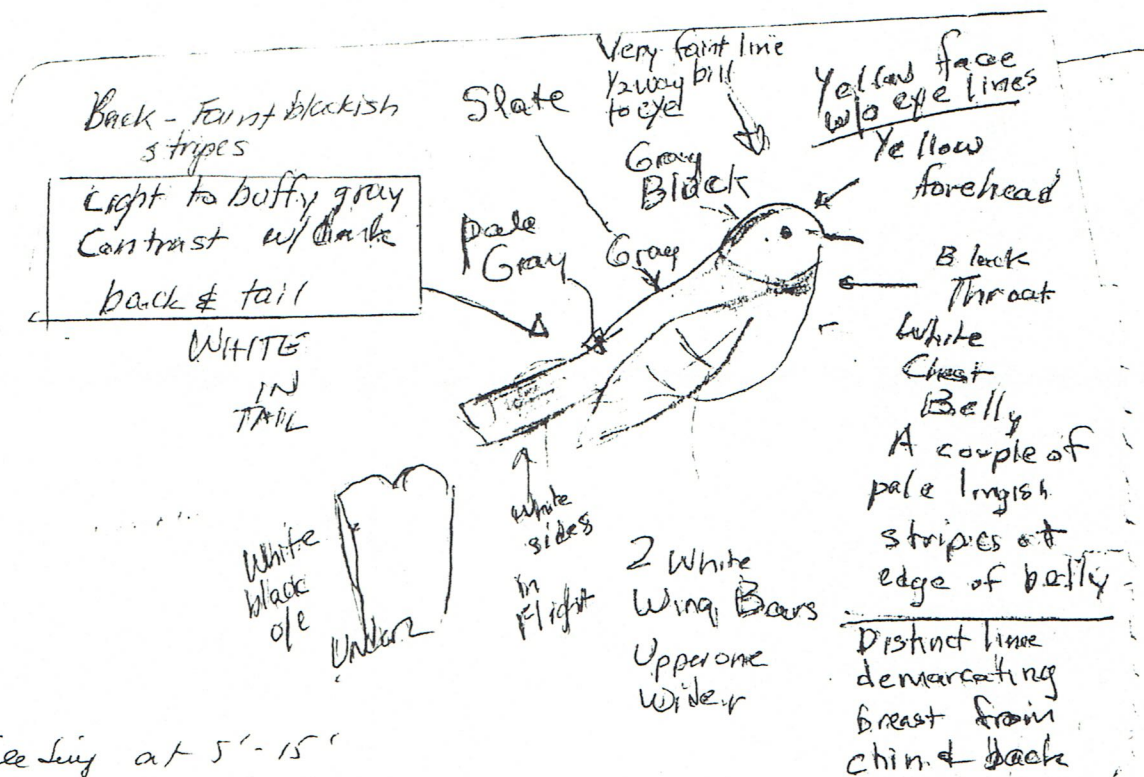 Back - Faint blackish
stripes
Light to buffy gray
Contrast w/ dark
back & tail
WHITE
IN
TAIL
Slate
Very faint line
1/2 way bill
to eye
Gray
Black
Pale
Gray
Gray
Yellow face
w/o eye lines
Yellow
forehead
Black
Throat
White
Chest
Belly
A couple of
pale
stripes at
edge of belly
Distinct line
demarcating
breast from
chin & back
White
sides
in
flight
2 White
Wing Bars
Upper one
Wider
White
black
o/e
Under
at 5'-15'